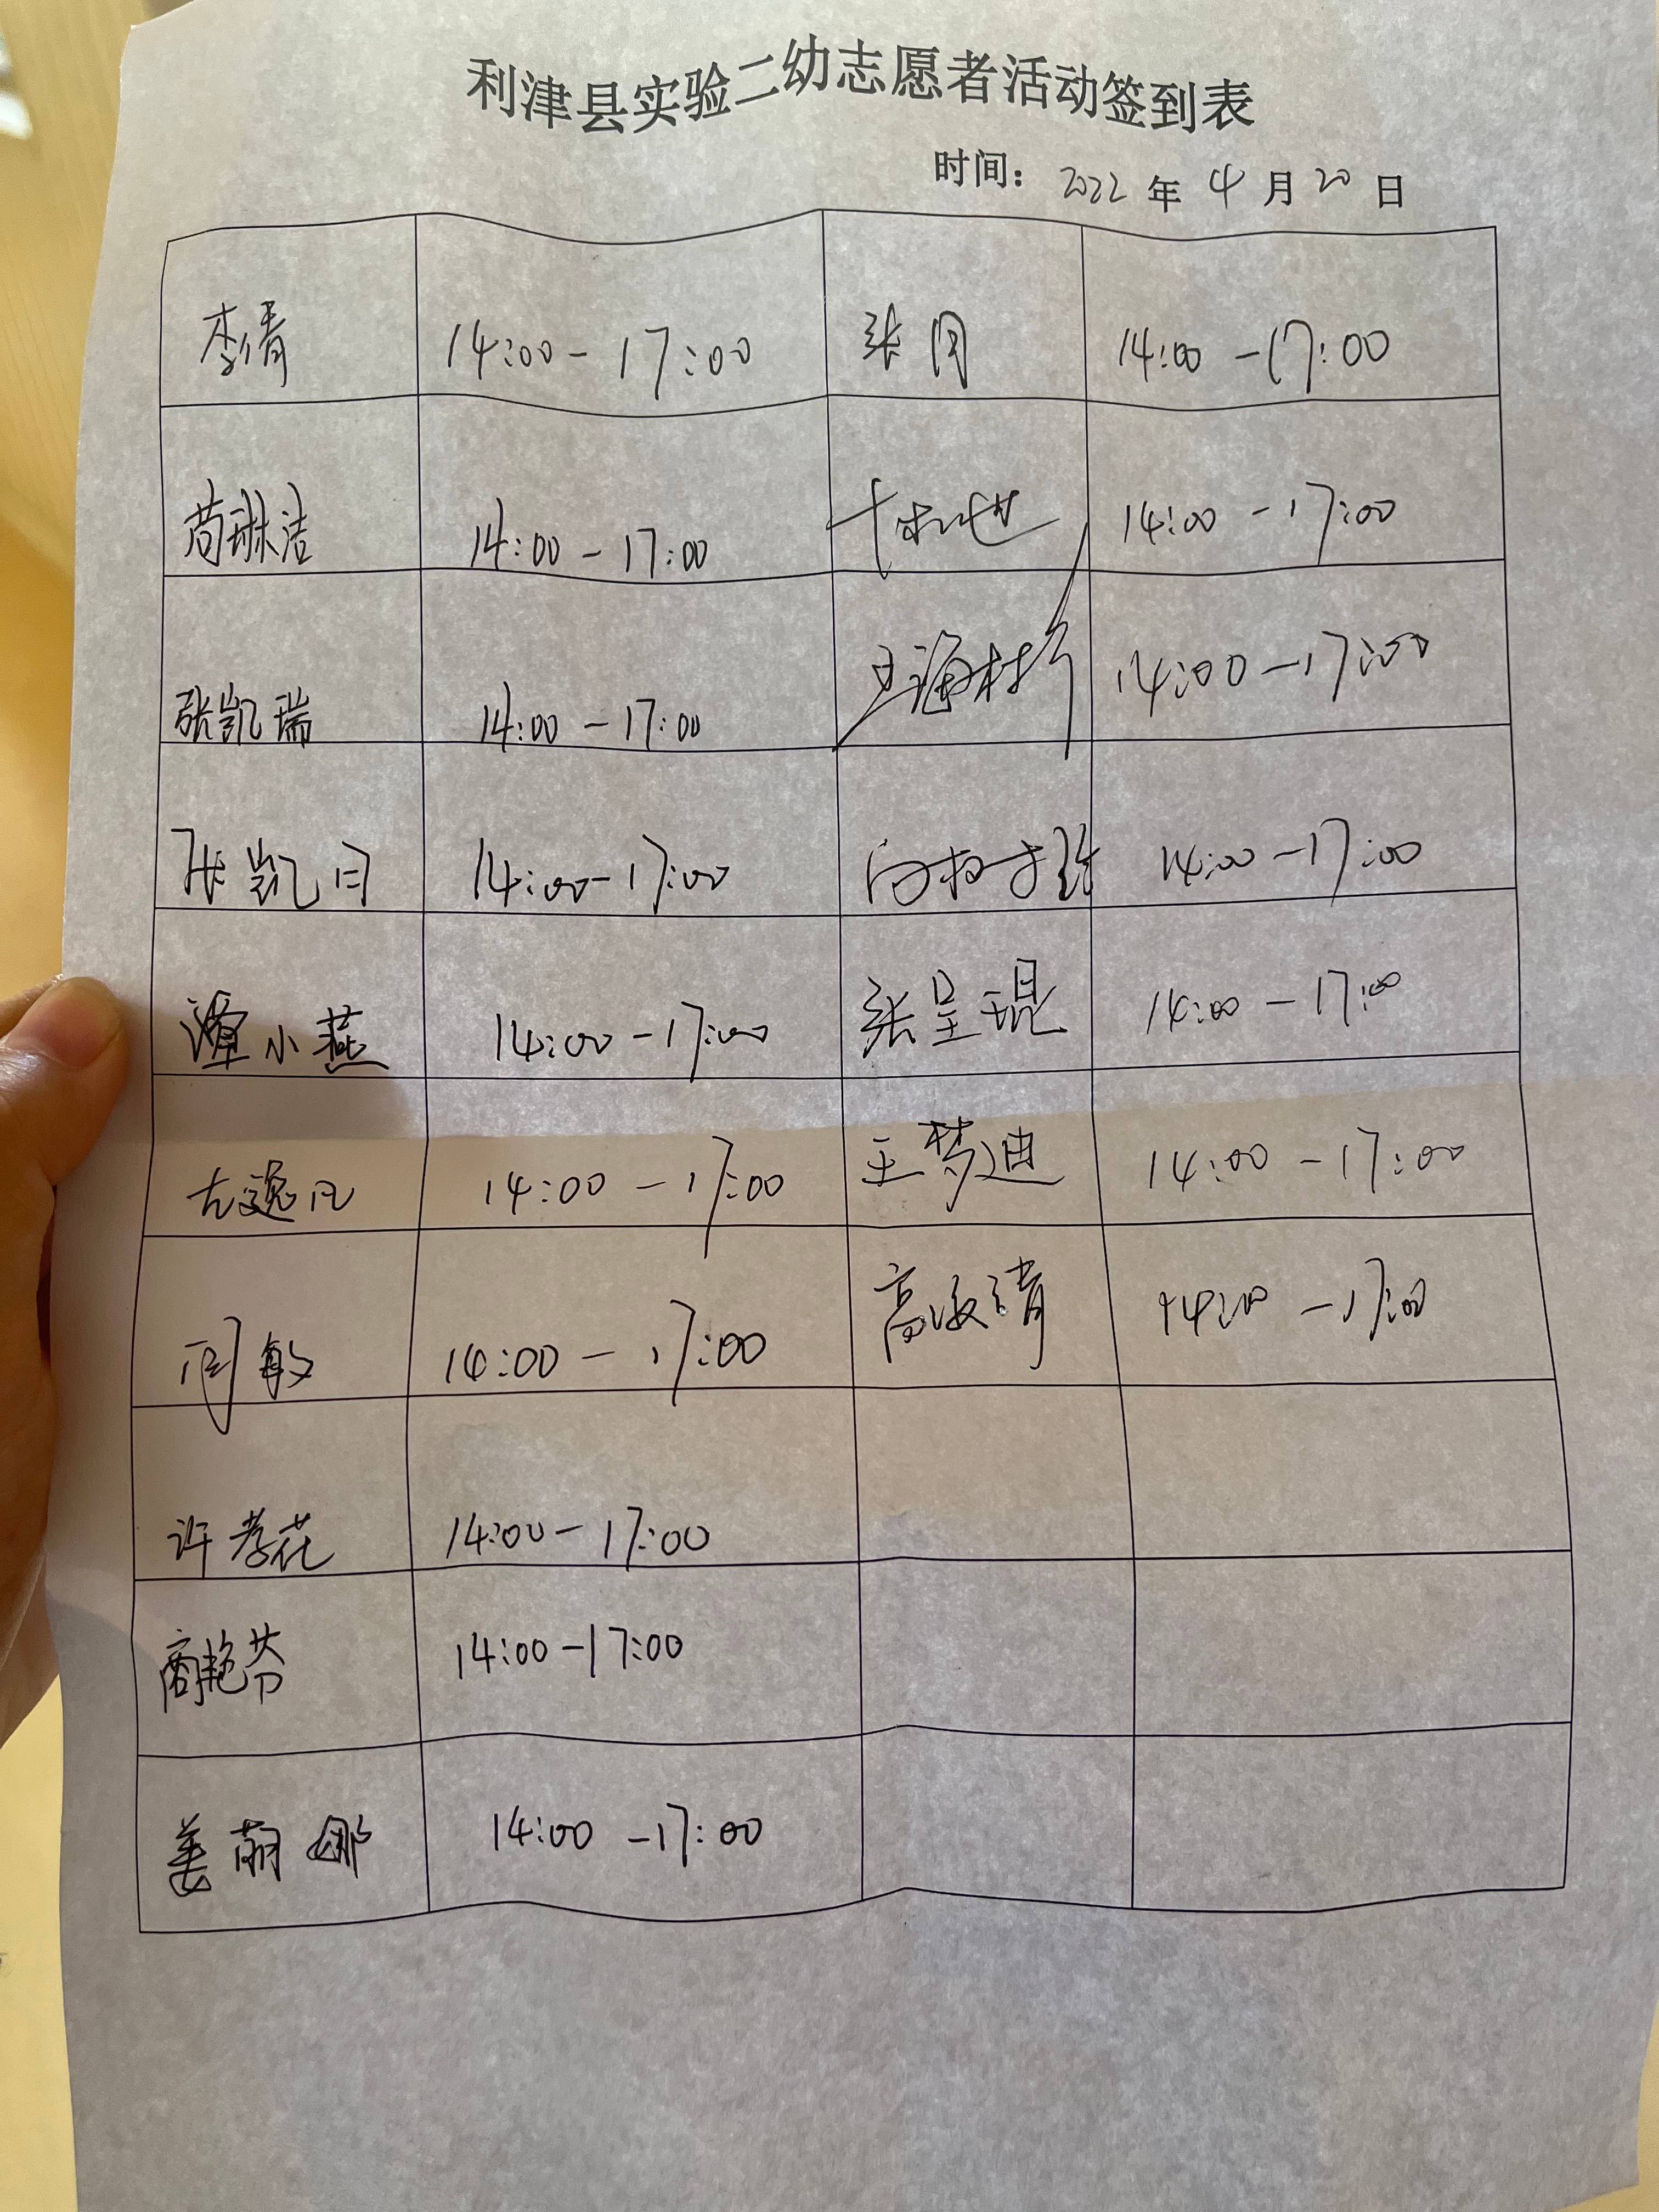 利津县实验二幼志愿者活动签到表
时间: 2022 年 4 月 20 日
李倩 14:00-17:00 张月 14:00-17:00
苟琳洁 14:00-17:00 14:00-17:00
张凯瑞 14:00-17:00 王海村 14:00-17:00
张凯月 14:00-17:00 14:00-17:00
潭小燕 14:00-17:00 张呈琨 14:00-17:00
左逸凡 14:00-17:00 王梦迪 14:00-17:00
周敏 14:00-17:00 高淑清 14:00-17:00
许孝花 14:00-17:00
商艳芬 14:00-17:00
姜萌娜 14:00-17:00